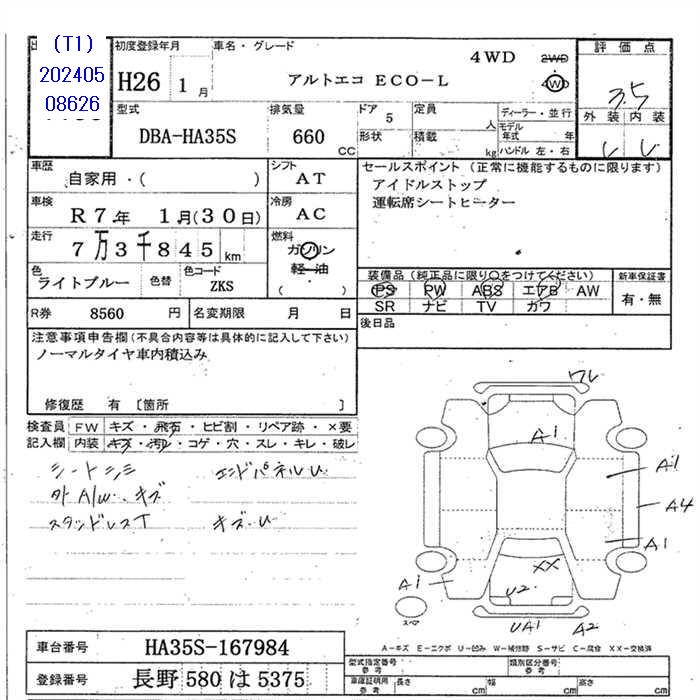 (T1)
202405
08626
初度登録年月
H26 1月
車名・グレード
4WD
アルトエコ ECO-L
2WD
4WD
評価点
3.5
外装 内装
型式
DBA-HA35S
排気量
660 CC
ドア 5
形状
定員 人
積載 kg
ディーラー・並行
モデル年式 年
ハンドル 左・右
車歴
自家用・( )
シフト
AT
車検
R7年 1月(30日)
冷房
AC
走行
7万3千845km
燃料
ガソリン
軽・油
( )
色
ライトブルー
色替
色コード
ZKS
R券 8560 円
名変期限 月 日
セールスポイント(正常に機能するものに限ります)
アイドルストップ
運転席シートヒーター
装備品(純正品に限り○をつけてください)
PS PW ABS エアB AW
SR ナビ TV カワ
新車保証書
有・無
後日品
注意事項申告欄(不具合内容等は具体的に記入して下さい)
ノーマルタイヤ車内積込み
修復歴 有〔箇所 〕
検査員記入欄
FW キズ・飛石・ヒビ割・リペア跡・×要
内装 キズ・汚れ・コゲ・穴・スレ・キレ・破レ
シートシミ
外A/W.キズ
スタッドレスT
エンドパネルU
キズ・U
ワレ
A1
A1
A4
A1
A1
XX
U2
UA1
A2
スペア
A-キズ E-エクボ U-凹み W-補修跡 S-サビ C-腐食 XX-交換済
車台番号 HA35S-167984
登録番号 長野 580 は 5375
型式指定番号 参考
類別区分番号 参考
車庫証明用 参考
長さ cm
幅 cm
高さ cm